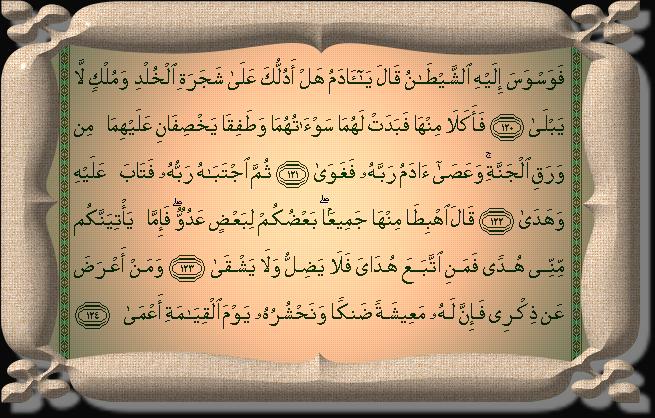 فَوَسْوَسَ إِلَيْهِ ٱلشَّيْطَـٰنُ قَالَ يَـٰٓـَٔادَمُ هَلْ أَدُلُّكَ عَلَىٰ شَجَرَةِ ٱلْخُلْدِ وَمُلْكٍ لَّا
يَبْلَىٰ ١٢٠ فَأَكَلَا مِنْهَا فَبَدَتْ لَهُمَا سَوْءَٰتُهُمَا وَطَفِقَا يَخْصِفَانِ عَلَيْهِمَا مِن
وَرَقِ ٱلْجَنَّةِ ۚ وَعَصَىٰٓ ءَادَمُ رَبَّهُۥ فَغَوَىٰ ١٢١ ثُمَّ ٱجْتَبَـٰهُ رَبُّهُۥ فَتَابَ عَلَيْهِ
وَهَدَىٰ ١٢٢ قَالَ ٱهْبِطَا مِنْهَا جَمِيعًۢا ۖ بَعْضُكُمْ لِبَعْضٍ عَدُوٌّ ۖ فَإِمَّا يَأْتِيَنَّكُم
مِّنِّى هُدًى فَمَنِ ٱتَّبَعَ هُدَاىَ فَلَا يَضِلُّ وَلَا يَشْقَىٰ ١٢٣ وَمَنْ أَعْرَضَ
عَن ذِكْرِى فَإِنَّ لَهُۥ مَعِيشَةً ضَنكًا وَنَحْشُرُهُۥ يَوْمَ ٱلْقِيَـٰمَةِ أَعْمَىٰ ١٢٤